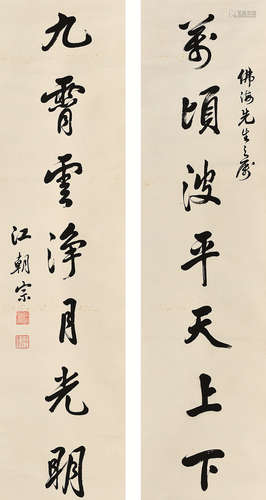 佛海先生之属
萬頃波平天上下
九霄雲淨月光明
江朝宗